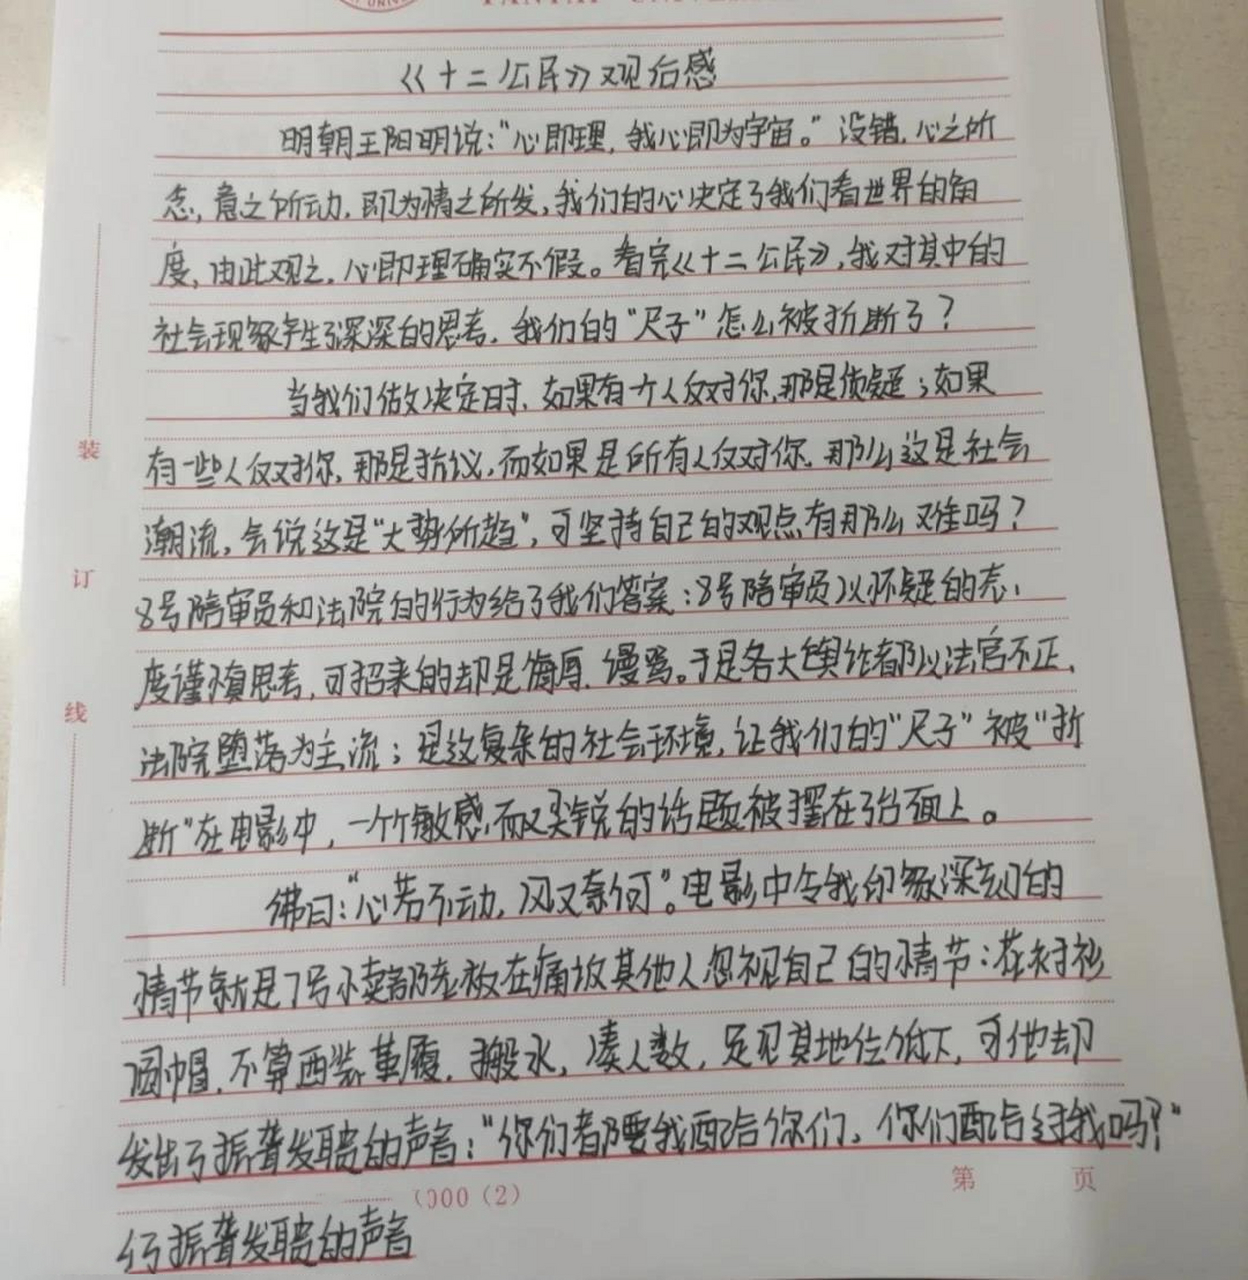 《十二公民》观后感
明朝王阳明说："心即理，我心即为宇宙。"没错，心之所
念，意之所动，即为情之所发，我们的心决定了我们看世界的角
度，由此观之，心即理确实不假。看完《十二公民》，我对其中的
社会现象产生了深深的思考，我们的"尺子"怎么被折断了？
当我们做决定时，如果有一个人反对你，那是质疑；如果
有一些人反对你，那是抗议，而如果是所有人反对你，那么这是社会
装
潮流，会说这是"大势所趋"，可坚持自己的观点有那么难吗？
订
8号陪审员和法院的行为给了我们答案：8号陪审员以怀疑的态、
度谨慎思考，可招来的却是侮辱、谩骂。于是各大舆论都以法官不正、
线
法院堕落为主流；是这复杂的社会环境，让我们的"尺子"被"折
断"在电影中，一个个敏感而又尖锐的话题被摆在了台面上。
佛曰："心若不动，风又奈何"。电影中令我印象深刻的
情节就是7号小卖部 在痛放其他人忽视自己的情节：花衬衫
圆帽，不算西装革履，搬水，凑人数，足见其地位低下，可他却
发出了振聋发聩的声音："你们都要我配合你们，你们配合过我吗？"
第 页
000 (2)
振聋发聩的声音